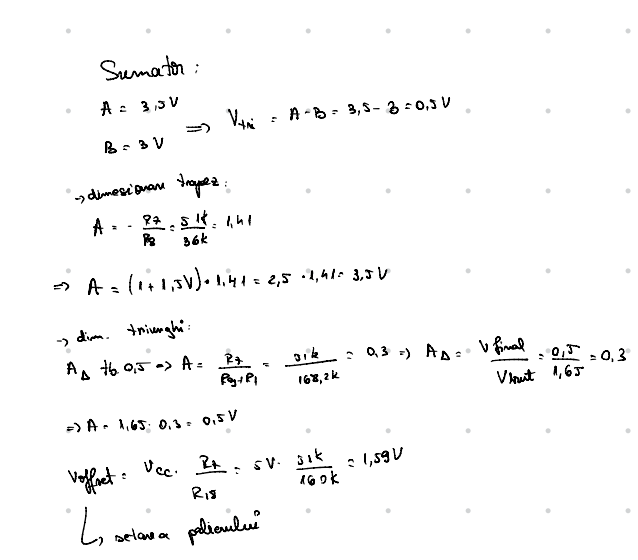 Sumator :
A = 3,5V
B = 3V
=> Vtri = A-B = 3,5 - 3 = 0,5V
-> dimesionare trapez:
A = - R7/R8 = 51k/36k = 1,41
=> A = (1+1,5V) · 1,41 = 2,5 · 1,41 = 3,5V
-> dim. triunghi:
AΔ tb 0,5 => A = R7/R9+P1 = 51k/168,2k = 0,3 => AΔ = Vfinal/Vinit = 0,5/1,65 = 0,3
=> A = 1,65 · 0,3 = 0,5V
Voffset = Vcc · R7/R15 = 5V · 51k/160k = 1,59V
setarea palierului